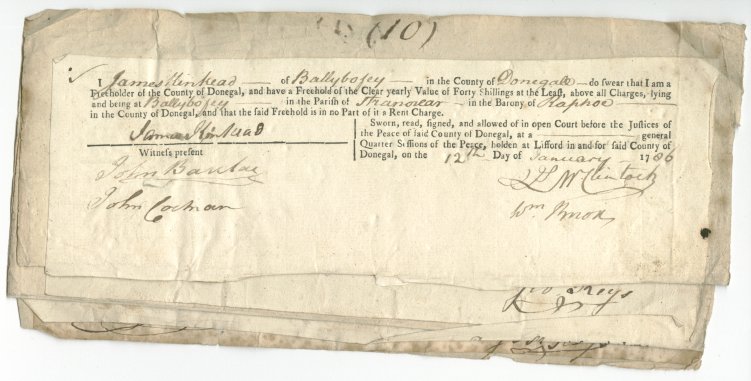 (10)
I James Kinkead of Ballybofey in the County of Donegall do swear that I am a
Freeholder of the County of Donegal, and have a Freehold of the Clear yearly Value of Forty Shillings at the Least, above all Charges, lying
and being at Ballybofey in the Parish of Stranorlar in the Barony of Raphoe
in the County of Donegal, and that the said Freehold is in no Part of it a Rent Charge.
James Kinkead
Witness present
John Barclay
John Cochran
Sworn, read, signed, and allowed of in open Court before the Justices of
the Peace of said County of Donegal, at a general
Quarter Sessions of the Peace, holden at Lifford in and for said County of
Donegal, on the 12th Day of January 1786
McClintock
Wm Knox